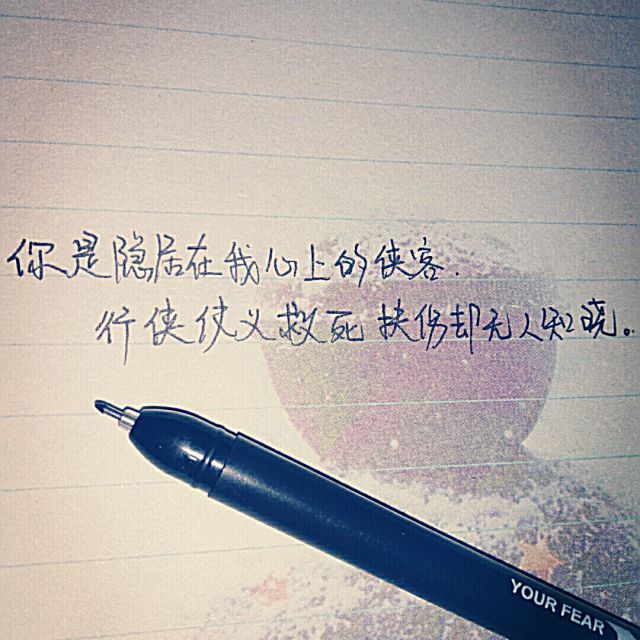 你是隐居在我心上的侠客.
行侠仗义救死扶伤却无人知晓。
YOUR FEAR